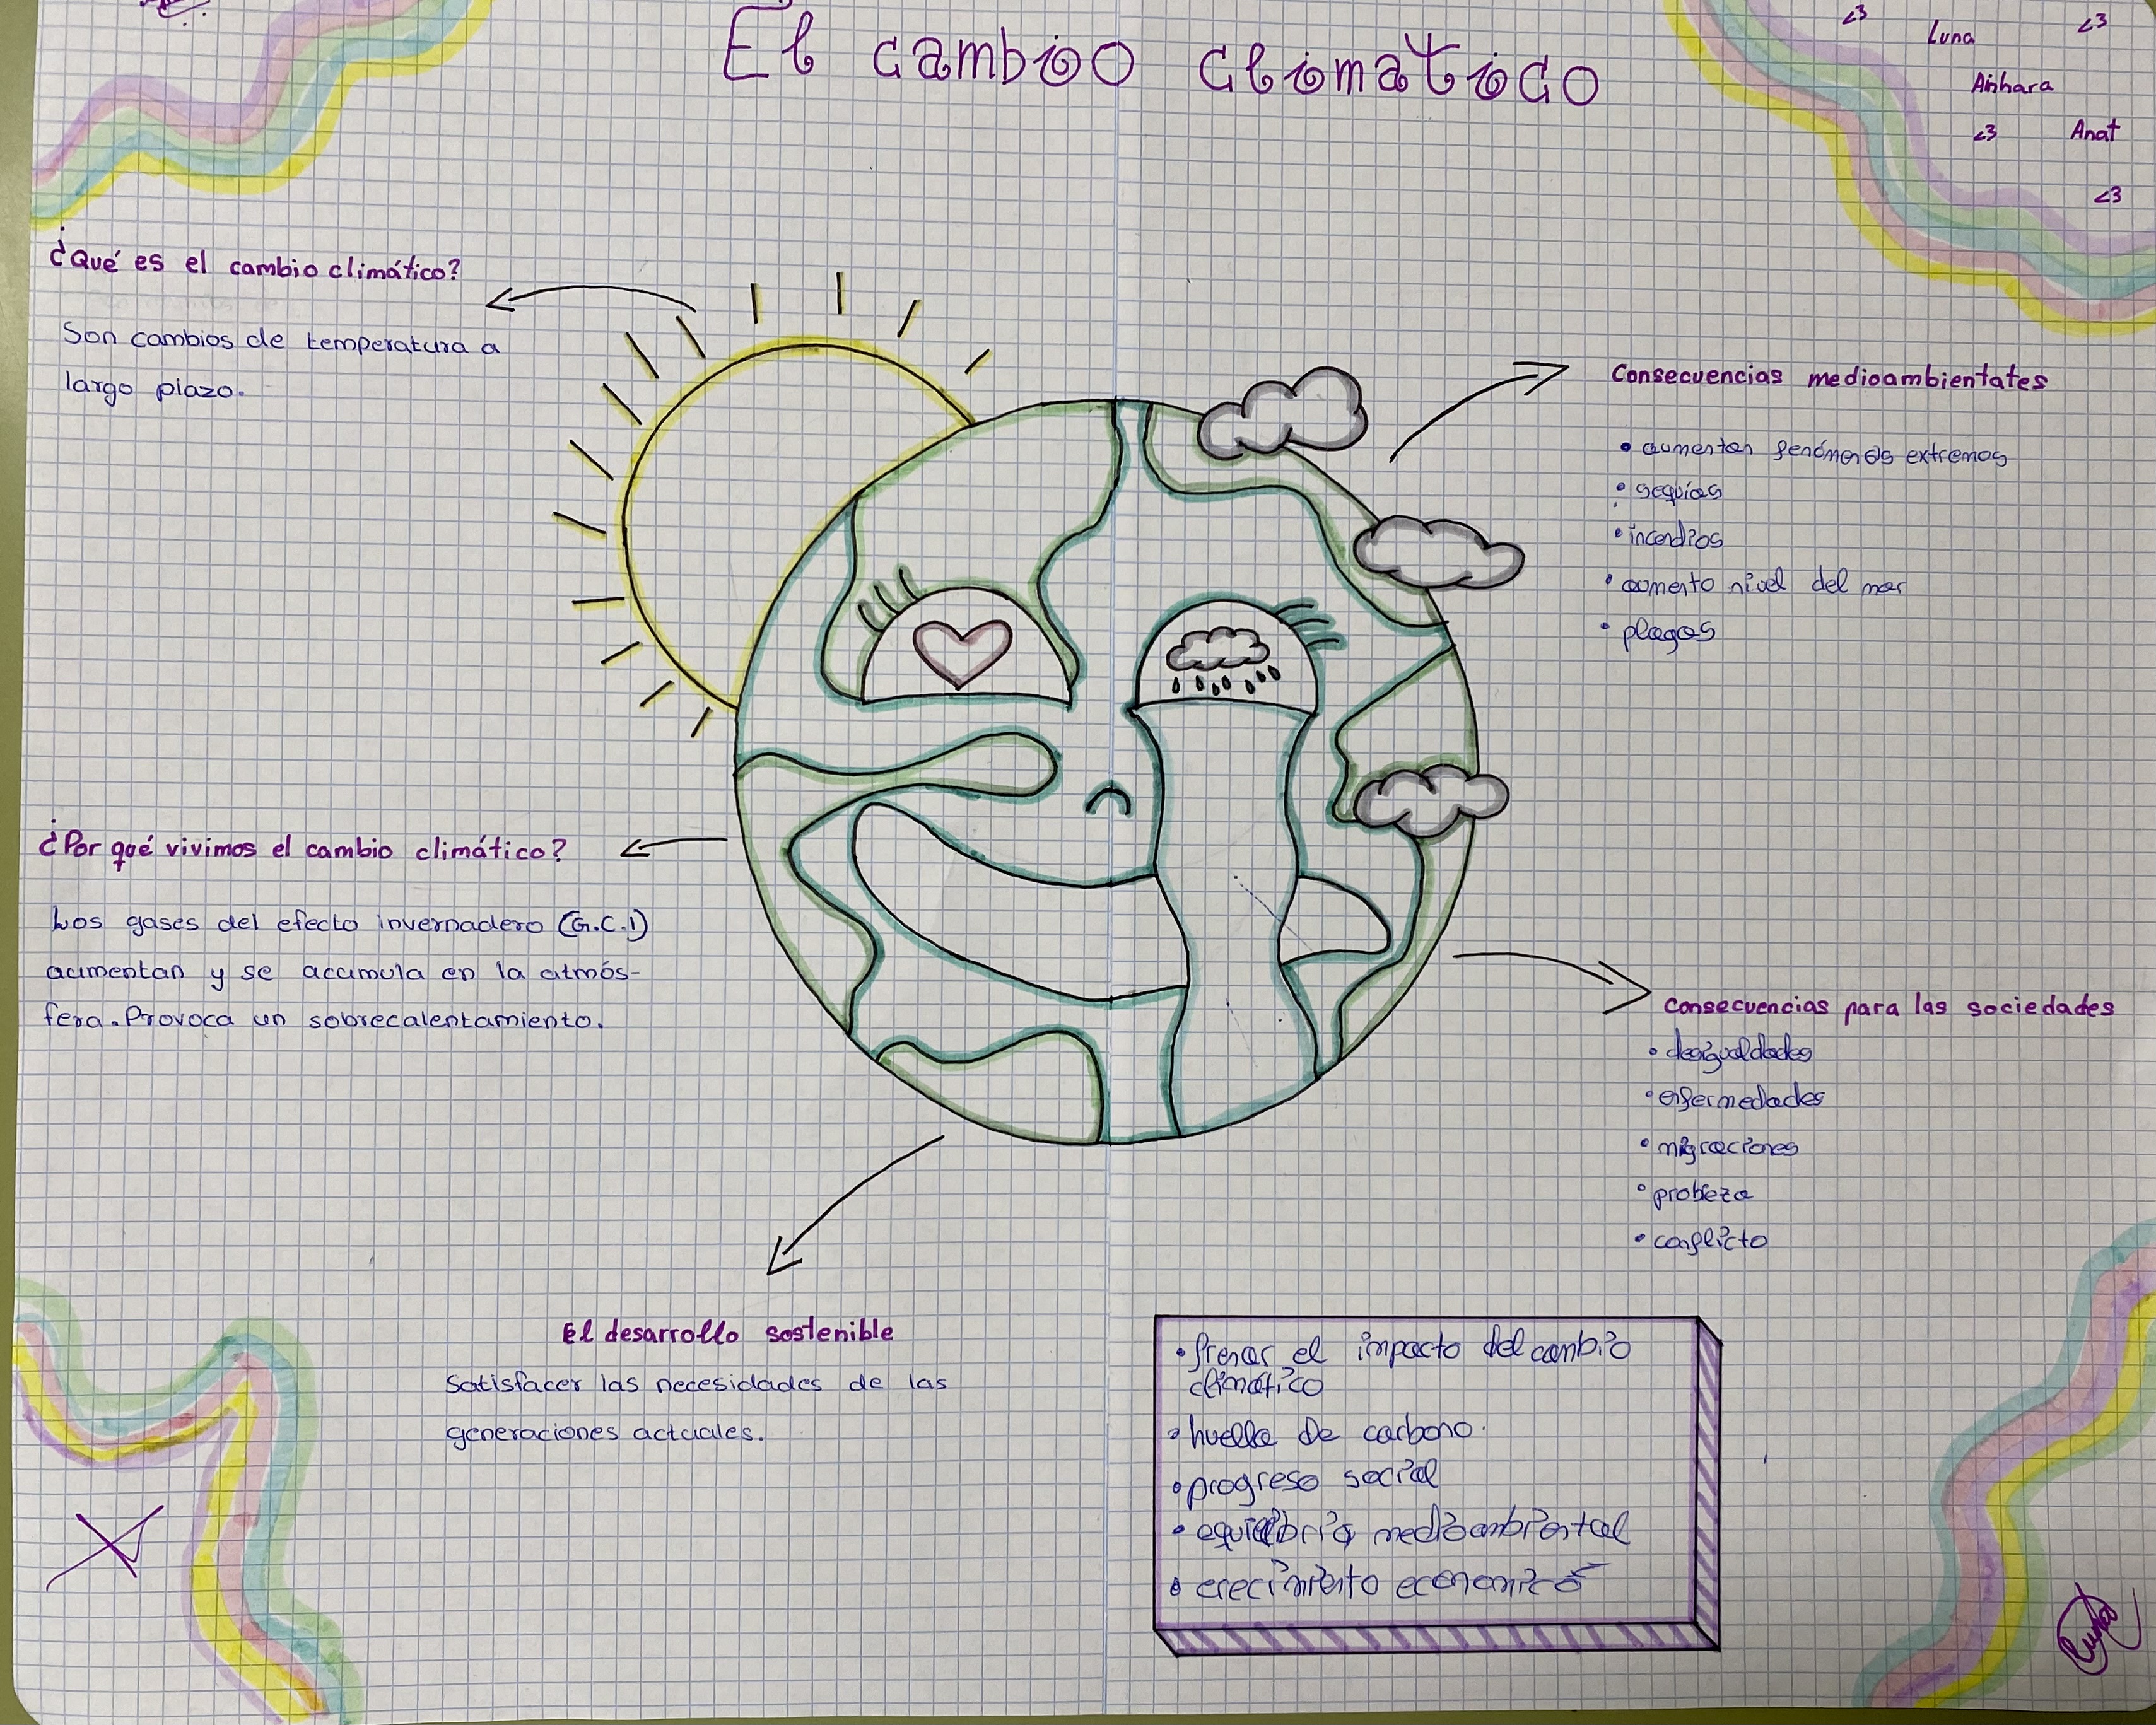 El cambio climatico
<3 Luna <3
Ainhara
<3 Anat
<3
¿Qué es el cambio climático?
Son cambios de temperatura a
largo plazo.
¿Por qué vivimos el cambio climático?
Los gases del efecto invernadero (G.C.I)
aumentan y se acumula en la atmós-
fera. Provoca un sobrecalentamiento.
Consecuencias medioambientates
• aumentan fenómenos extremos
• sequías
• incendios
• aumento nivel del mar
• plagas
Consecuencias para las sociedades
• desigualdades
• enfermedades
• migraciones
• probeza
• conflicto
El desarrollo sostenible
Satisfacer las necesidades de las
generaciones actuales.
• frenar el impacto del cambio
climático
• huella de carbono.
• progreso social
• equilibrio medioambiental
• crecimiento economico